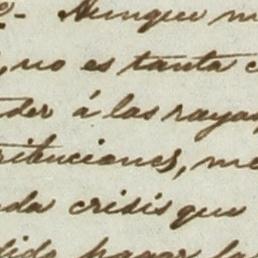 - Aunque m
, no es tanta c
der á las rayas
ribuciones, me
da crisis que
dido pagar la